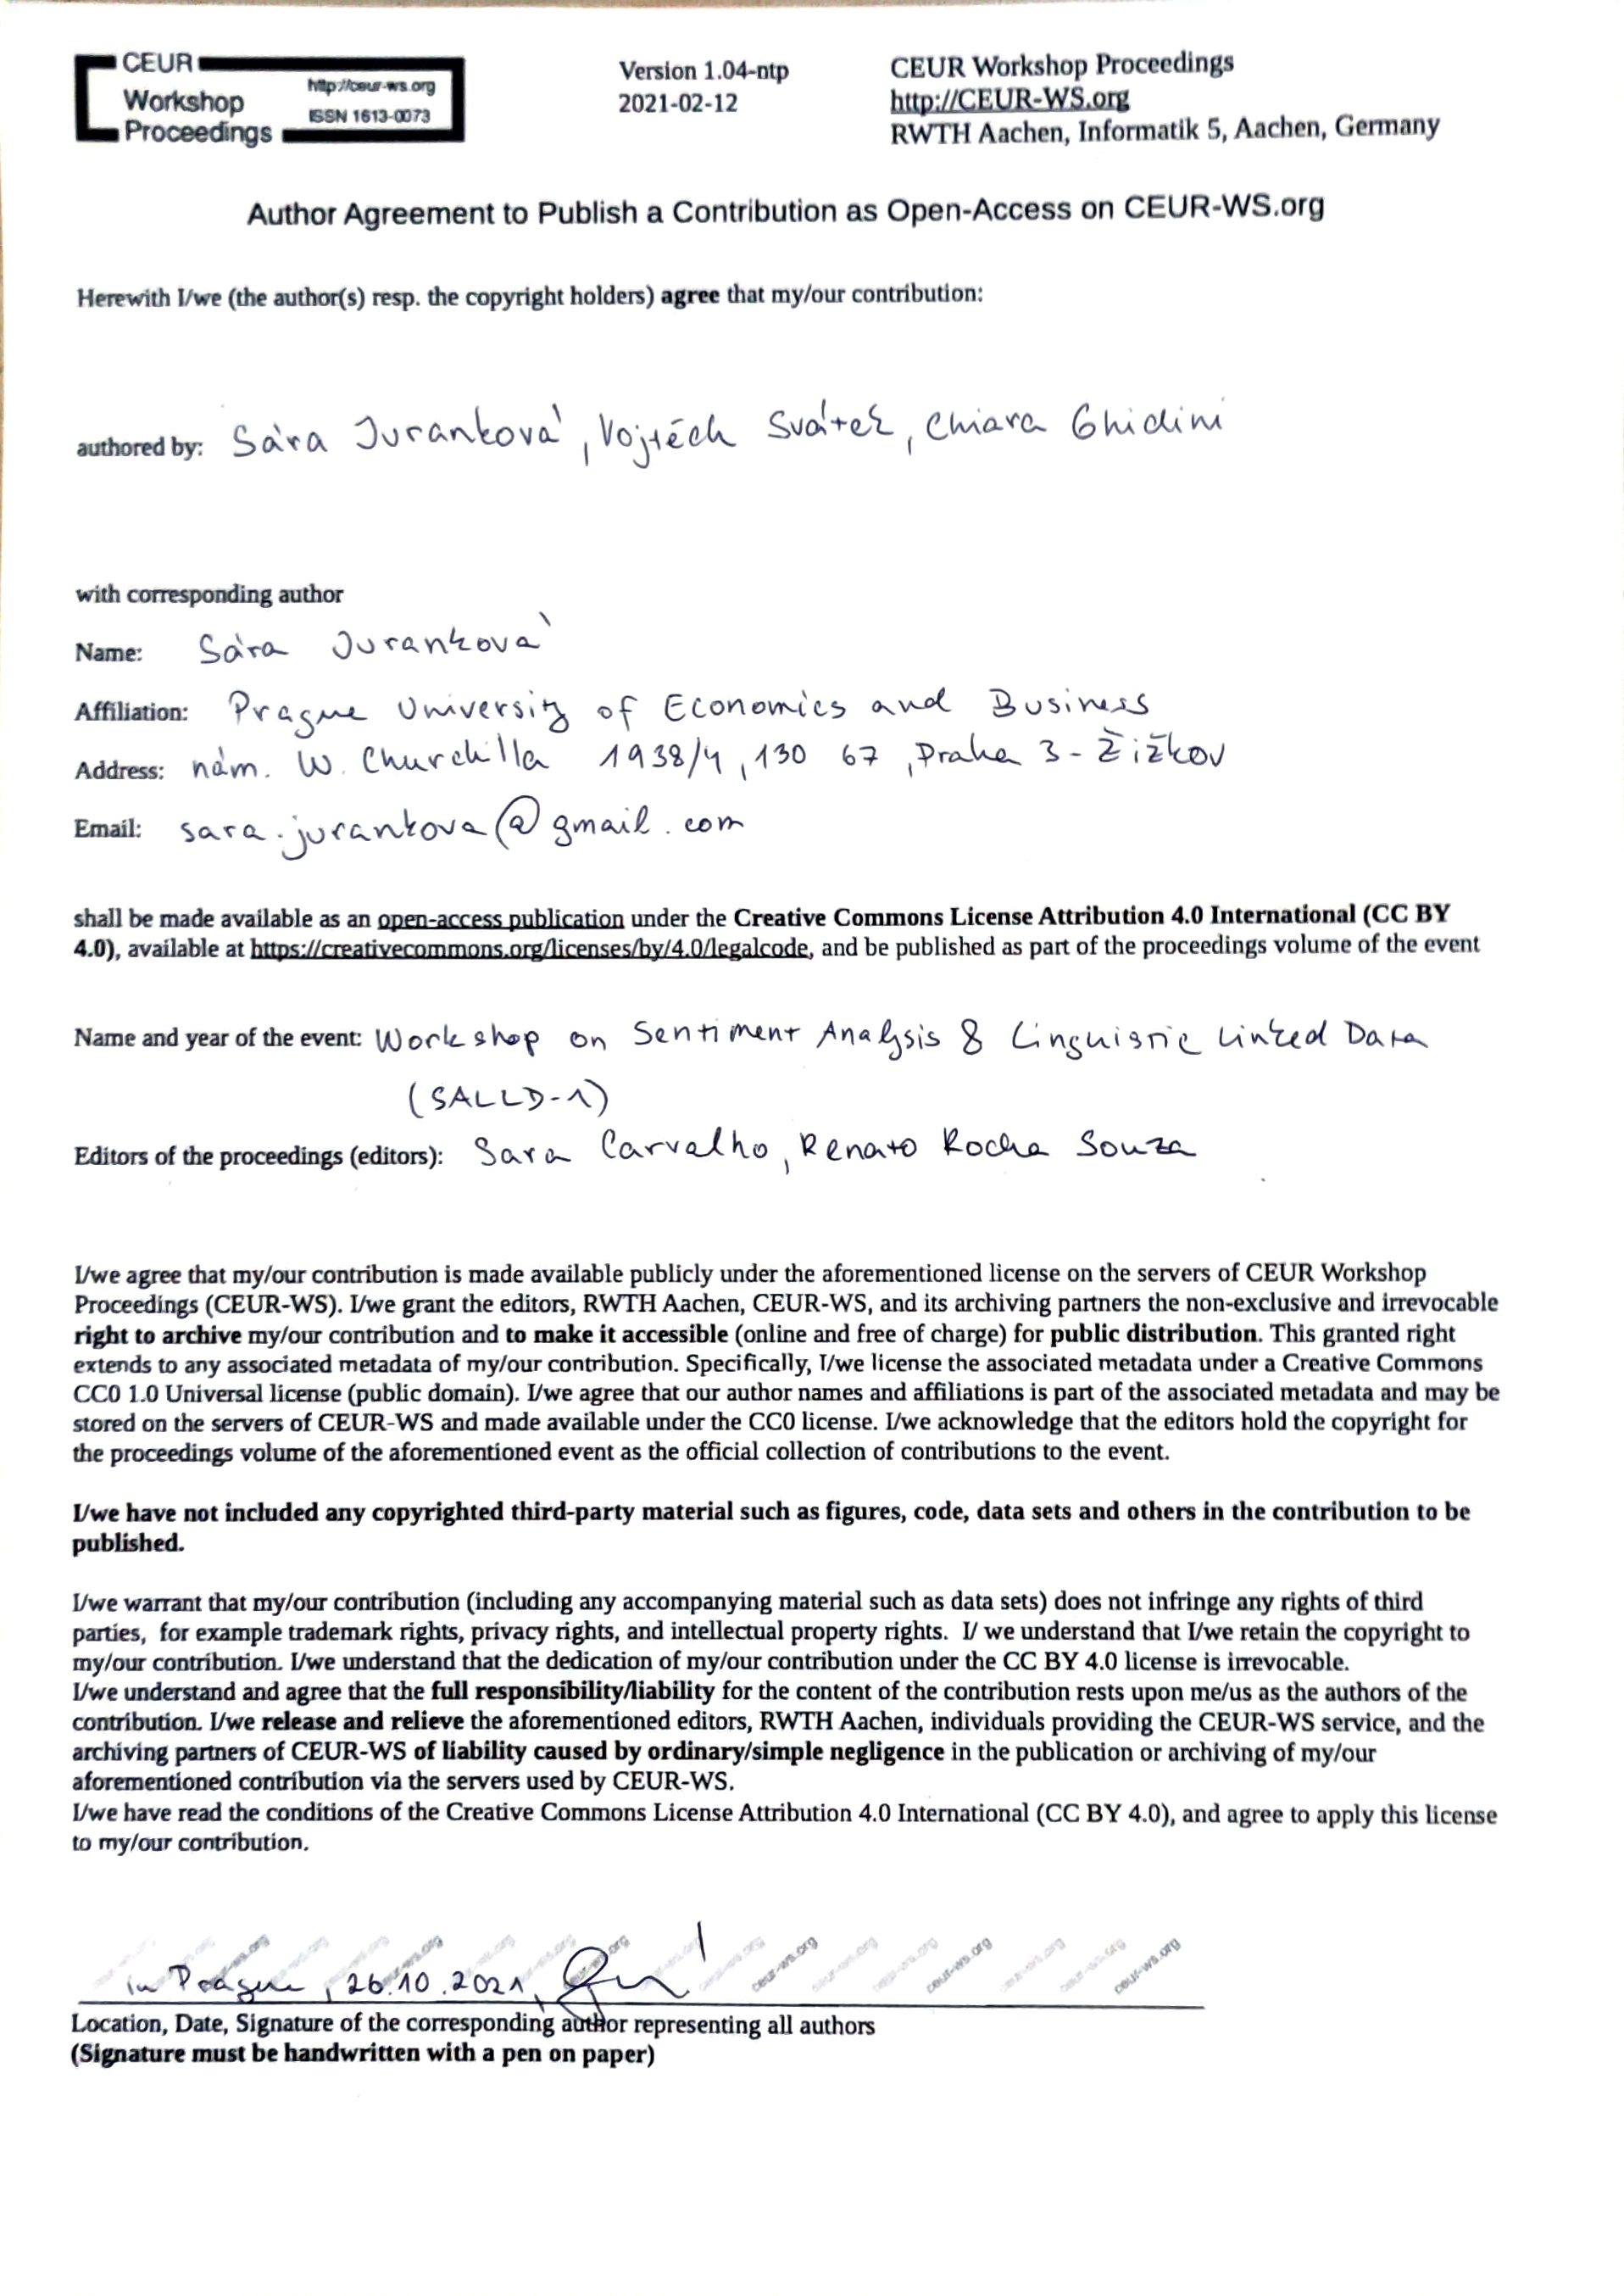 CEUR
Workshop
Proceedings
http://ceur-ws.org
ISSN 1613-0073
Version 1.04-ntp
2021-02-12
CEUR Workshop Proceedings
http://CEUR-WS.org
RWTH Aachen, Informatik 5, Aachen, Germany
Author Agreement to Publish a Contribution as Open-Access on CEUR-WS.org
Herewith I/we (the author(s) resp. the copyright holders) agree that my/our contribution:
authored by: Sára Juranková, Vojtěch Svátek, Chiara Ghidini
with corresponding author
Name: Sára Juranková
Affiliation: Prague University of Economics and Business
Address: nám. W. Churchilla 1938/4, 130 67, Praha 3 - Žižkov
Email: sara.jurankova@gmail.com
shall be made available as an open-access publication under the Creative Commons License Attribution 4.0 International (CC BY
4.0), available at https://creativecommons.org/licenses/by/4.0/legalcode, and be published as part of the proceedings volume of the event
Name and year of the event: Workshop on Sentiment Analysis & Linguistic Linked Data
(SALLD-1)
Editors of the proceedings (editors): Sara Carvalho, Renato Rocha Souza
I/we agree that my/our contribution is made available publicly under the aforementioned license on the servers of CEUR Workshop
Proceedings (CEUR-WS). I/we grant the editors, RWTH Aachen, CEUR-WS, and its archiving partners the non-exclusive and irrevocable
right to archive my/our contribution and to make it accessible (online and free of charge) for public distribution. This granted right
extends to any associated metadata of my/our contribution. Specifically, I/we license the associated metadata under a Creative Commons
CC0 1.0 Universal license (public domain). I/we agree that our author names and affiliations is part of the associated metadata and may be
stored on the servers of CEUR-WS and made available under the CC0 license. I/we acknowledge that the editors hold the copyright for
the proceedings volume of the aforementioned event as the official collection of contributions to the event.
I/we have not included any copyrighted third-party material such as figures, code, data sets and others in the contribution to be
published.
I/we warrant that my/our contribution (including any accompanying material such as data sets) does not infringe any rights of third
parties, for example trademark rights, privacy rights, and intellectual property rights. I/ we understand that I/we retain the copyright to
my/our contribution. I/we understand that the dedication of my/our contribution under the CC BY 4.0 license is irrevocable.
I/we understand and agree that the full responsibility/liability for the content of the contribution rests upon me/us as the authors of the
contribution. I/we release and relieve the aforementioned editors, RWTH Aachen, individuals providing the CEUR-WS service, and the
archiving partners of CEUR-WS of liability caused by ordinary/simple negligence in the publication or archiving of my/our
aforementioned contribution via the servers used by CEUR-WS.
I/we have read the conditions of the Creative Commons License Attribution 4.0 International (CC BY 4.0), and agree to apply this license
to my/our contribution.
ceur-ws.org ceur-ws.org ceur-ws.org ceur-ws.org ceur-ws.org ceur-ws.org ceur-ws.org ceur-ws.org
in Prague, 26.10.2021,
Location, Date, Signature of the corresponding author representing all authors
(Signature must be handwritten with a pen on paper)